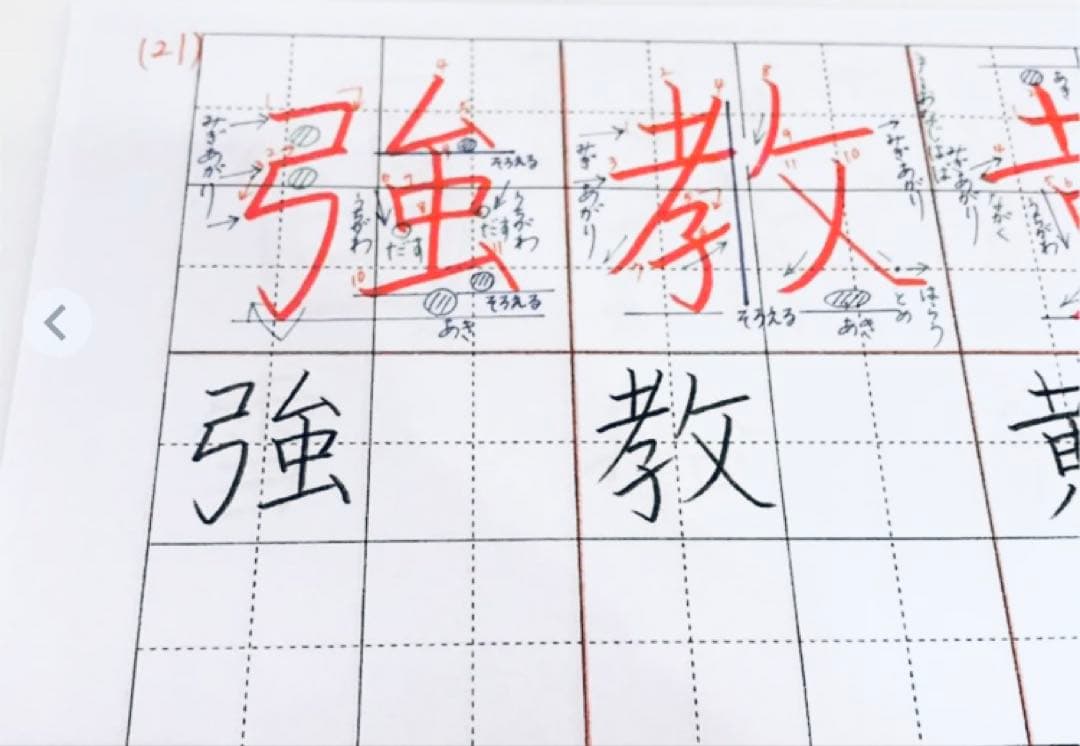 (21)
強
みぎあがり
そろえる
うちがわ
だす
だす
うちがわ
そろえる
あき
教
みぎあがり
みぎあがり
そろえる
あき
とめ
はらう
みぎあがり
ながく
うちがわ
強 教 黄